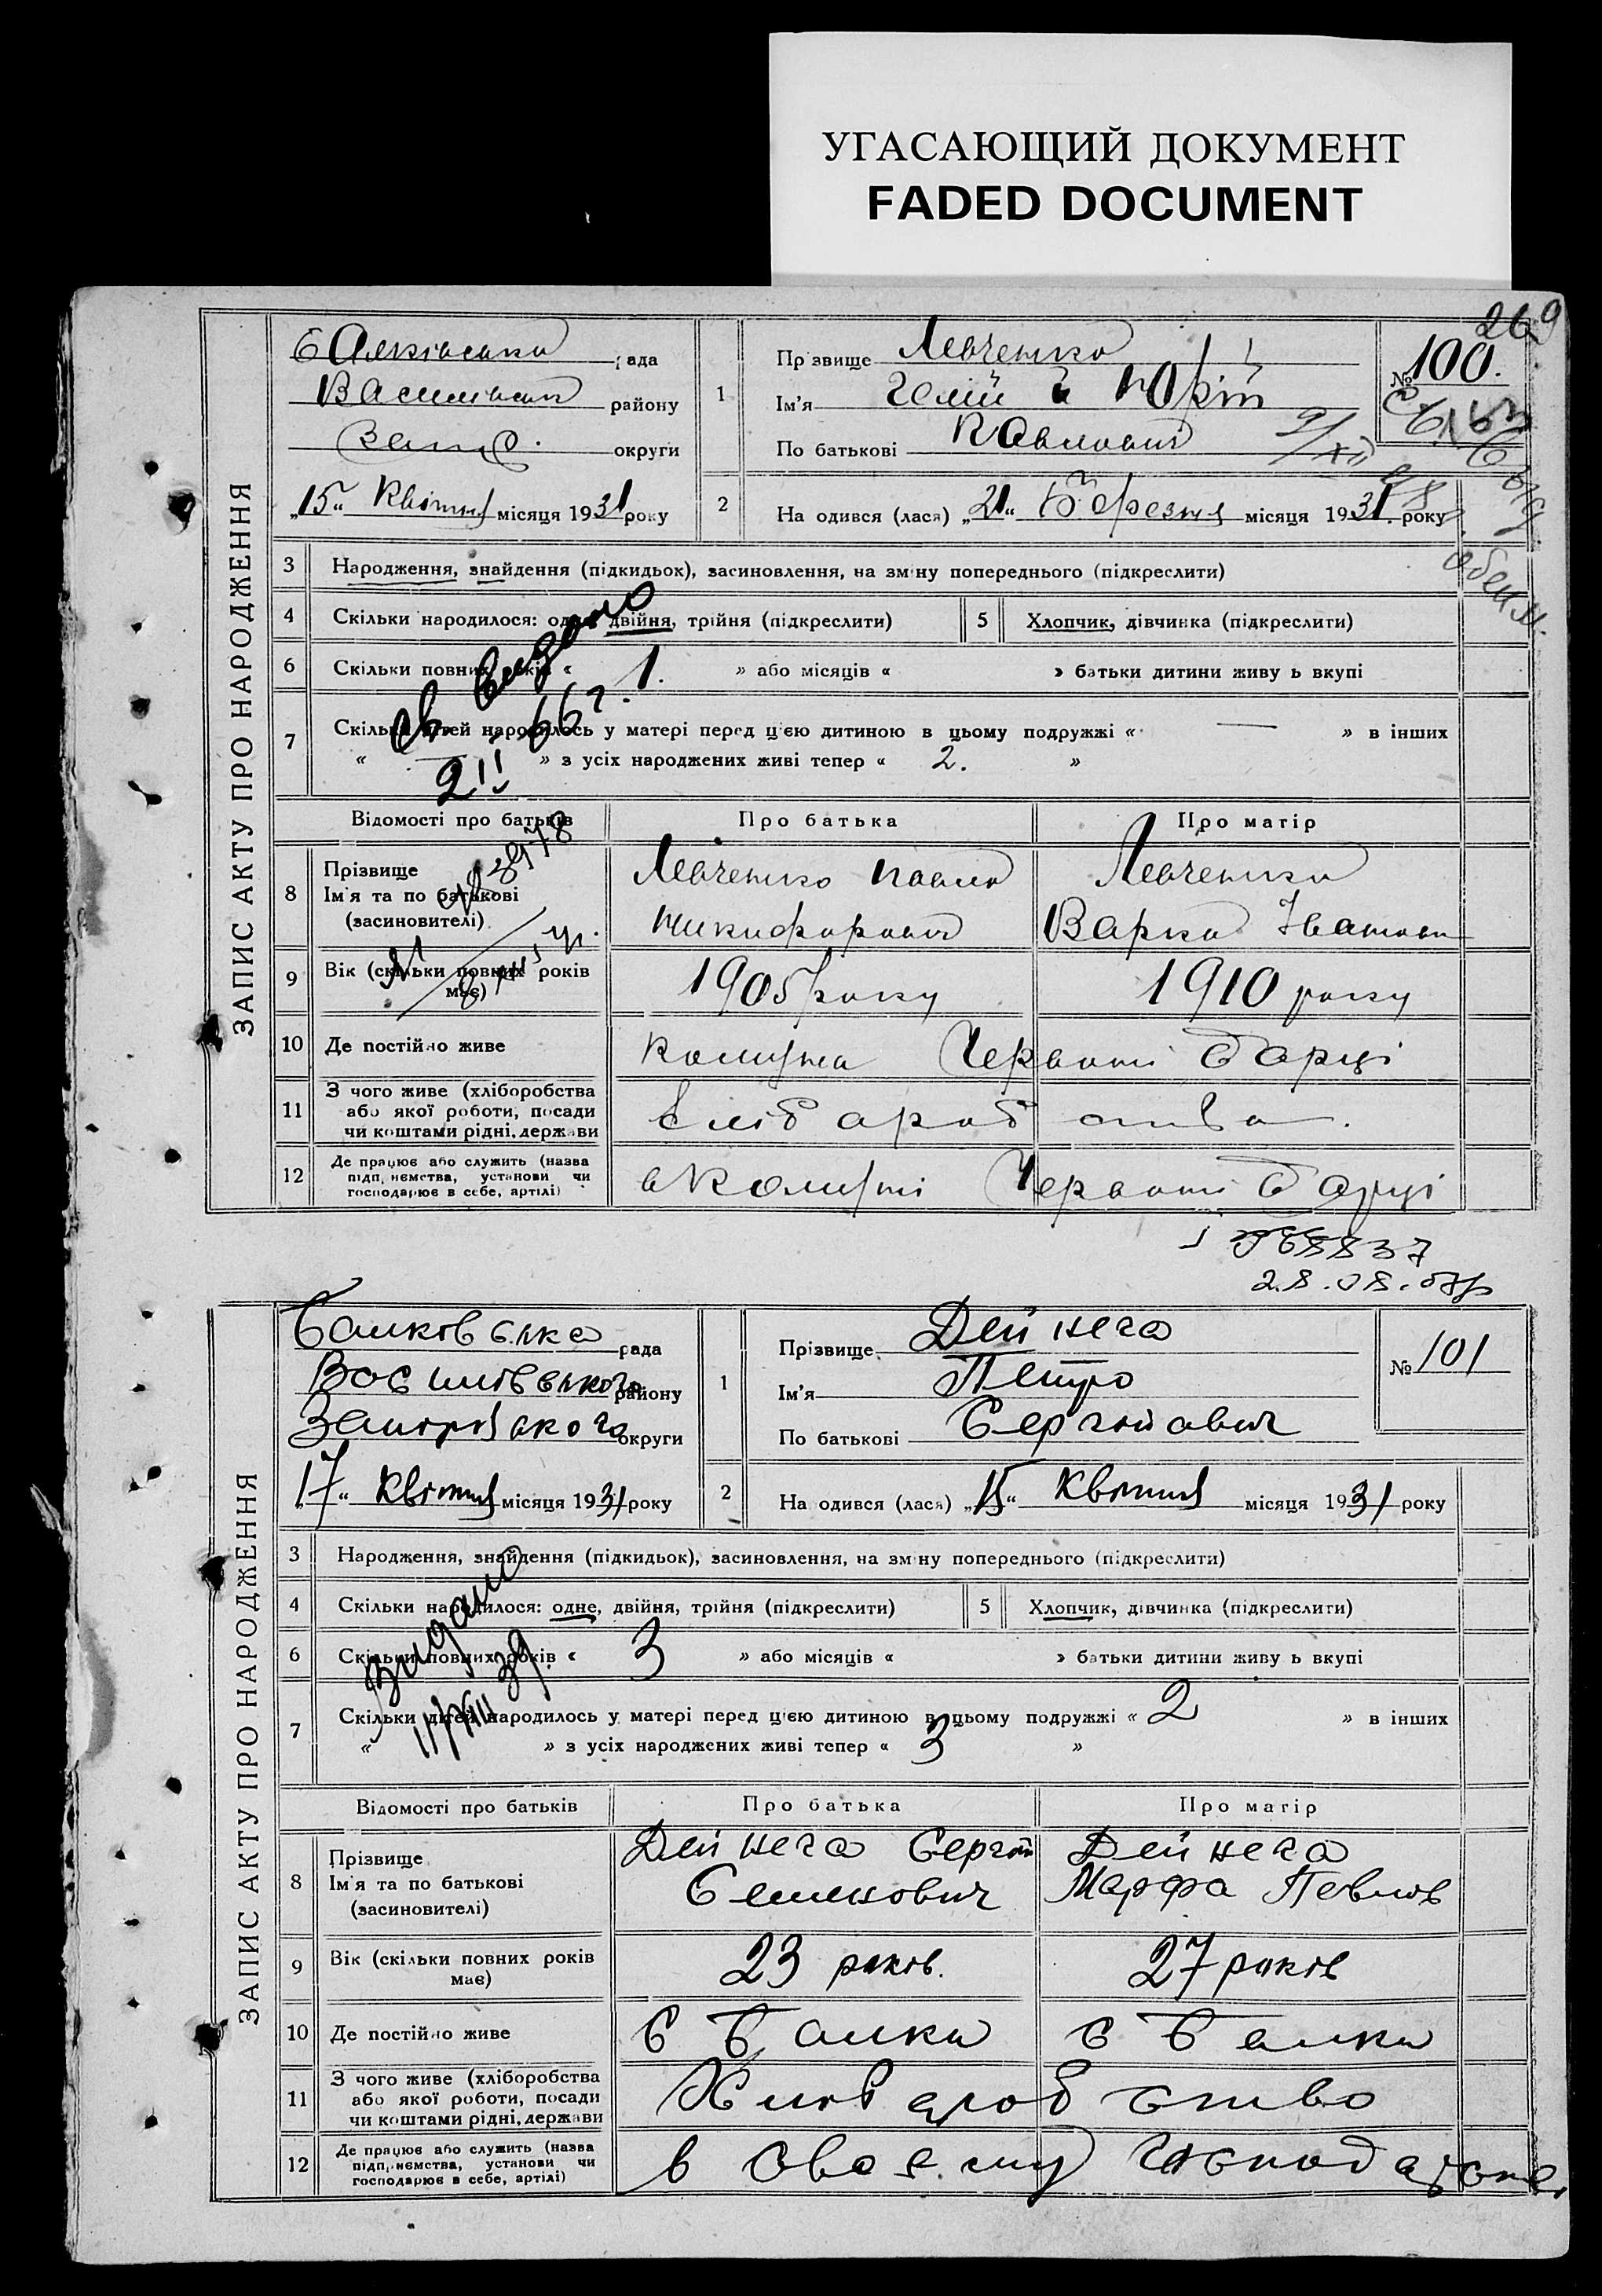 УГАСАЮЩИЙ ДОКУМЕНТ
FADED DOCUMENT
269
ЗАПИС АКТУ ПРО НАРОДЖЕННЯ
Балківська рада
Василівськ району
Запор. округи
„15“ Квітня місяця 1931 року
1
Прізвище Левченко
Ім'я Гелій і Юрій
По батькові Павлович
№ 100.
2
На одився (лася) „21“ Березня місяця 1931. року
3 Народження, знайдення (підкидьок), засиновлення, на зміну попереднього (підкреслити)
4 Скільки народилося: одне, двійня, трійня (підкреслити)
5 Хлопчик, дівчинка (підкреслити)
6 Скільки повних років « 1. » або місяців « » батьки дитини живу ь вкупі
7 Скільки дітей народилось у матері перед цією дитиною в цьому подружжі « — » в інших
« — » з усіх народжених живі тепер « 2. »
Відомості про батьків
Про батька
Про матір
8 Прізвище
Ім'я та по батькові
(засиновителі)
Левченко Павло
Никифорович
Левченко
Варка Іванов
9 Вік (скільки повних років має)
1905 року
1910 року
10 Де постійно живе
Комуна Червоні Борці
11 З чого живе (хліборобства
або якої роботи, посади
чи коштами рідні, держави
Хліборобство.
12 Де працює або служить (назва
підприємства, установи чи
господарює в себе, артілі)
в Комуні Червоні Борці
28.08.07р
ЗАПИС АКТУ ПРО НАРОДЖЕННЯ
Балковська рада
Василівського району
Запорізького округи
„17“ Квітня місяця 1931 року
1
Прізвище Дейнега
Ім'я Петро
По батькові Сергійович
№ 101
2
На одився (лася) „15“ Квітня місяця 1931 року
3 Народження, знайдення (підкидьок), засиновлення, на зміну попереднього (підкреслити)
4 Скільки народилося: одне, двійня, трійня (підкреслити)
5 Хлопчик, дівчинка (підкреслити)
6 Скільки повних років « 3 » або місяців « » батьки дитини живу ь вкупі
Видано
7 Скільки дітей народилось у матері перед цією дитиною в цьому подружжі « 2 » в інших
« » з усіх народжених живі тепер « 3 »
Відомості про батьків
Про батька
Про матір
8 Прізвище
Ім'я та по батькові
(засиновителі)
Дейнега Сергій
Семенович
Дейнега
Марфа Павлов
9 Вік (скільки повних років має)
23 років.
27 років
10 Де постійно живе
с Балки
с Балки
11 З чого живе (хліборобства
або якої роботи, посади
чи коштами рідні, держави
Хліборобство
12 Де працює або служить (назва
підприємства, установи чи
господарює в себе, артілі)
в своєму господарстві